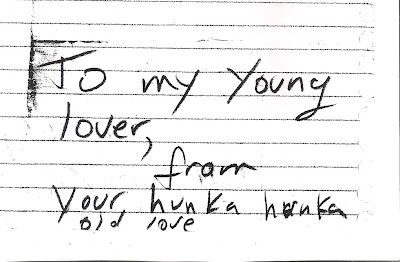 To my young
lover,
from
your hunka hunka
old love